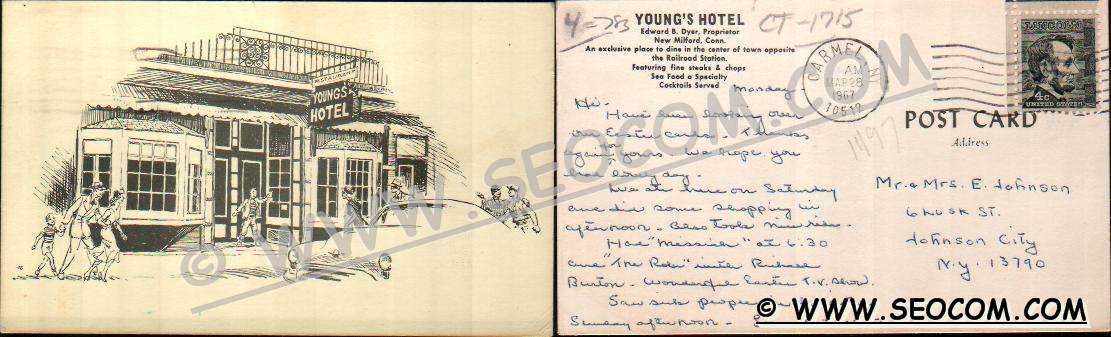 RESTAURANT
YOUNG'S
HOTEL
© WWW.SEOCOM.COM
YOUNG'S HOTEL
Edward B. Dyer, Proprietor
New Milford, Conn.
An exclusive place to dine in the center of town opposite
the Railroad Station.
Featuring fine steaks & chops
Sea Food a Specialty
Cocktails Served
CT-1715
CARMEL, N.Y.
AM
MAR 28
1967
10512
LINCOLN
4¢
UNITED STATES
Monday
Hi-
Have been looking over
our Easter cards & Thanks
again for yours. We hope you
had a long day.
We ate here on Saturday
and did some shopping in
afternoon. Also took nice ride.
Had "Messiah" at 6:30
and "The Robe" with Richard
Burton. Wonderful Easter T.V. show.
Saw sick people
Sunday afternoon.
POST CARD
Address
Mr. & Mrs. E. Johnson
6 Lusk St.
Johnson City
N.Y. 13790
© WWW.SEOCOM.COM